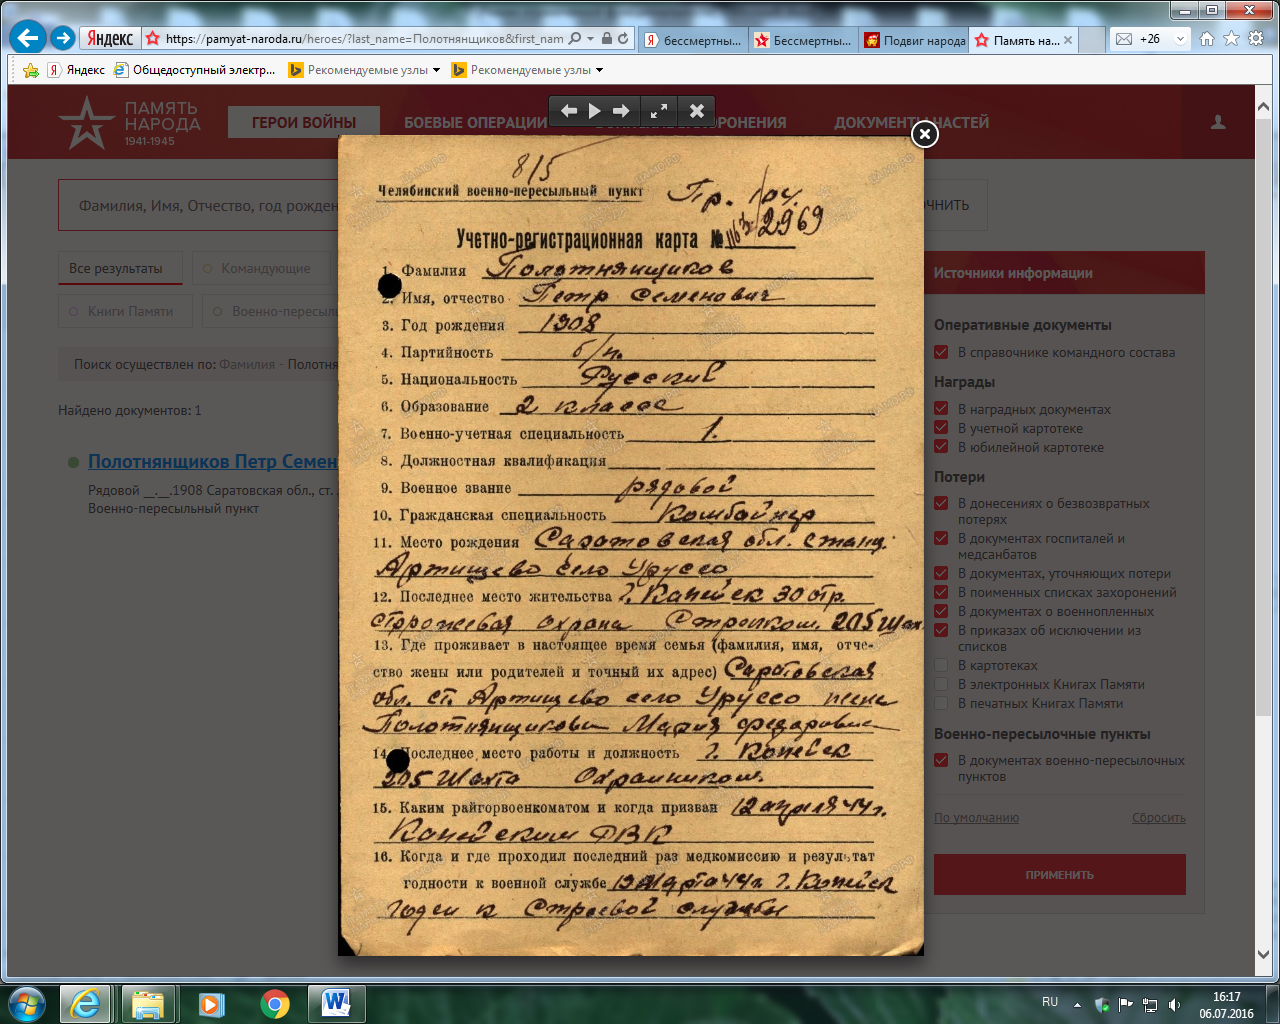 Яндекс
https://pamyat-naroda.ru/heroes/?last_name=Полотнянщиков&first_nam
бессмертны...
Бессмертны...
Подвиг народа
Память на...
+26
Яндекс
Общедоступный электр...
Рекомендуемые узлы
Рекомендуемые узлы
ПАМЯТЬ
НАРОДА
1941-1945
ГЕРОИ ВОЙНЫ
БОЕВЫЕ ОПЕРАЦИИ
ДОКУМЕНТЫ ЧАСТЕЙ
Фамилия, Имя, Отчество, год рожден
Все результаты
Командующие
Книги Памяти
Военно-пересыль
Поиск осуществлен по: Фамилия - Полотня
Найдено документов: 1
Полотнянщиков Петр Семен
Рядовой __.__.1908 Саратовская обл., ст.
Военно-пересыльный пункт
8/5
Челябинский военно-пересыльный пункт
Пр. 104.
Учетно-регистрационная карта № 2969
1. Фамилия Полотнянщиков
2. Имя, отчество Петр Семенович
3. Год рождения 1908
4. Партийность б/п.
5. Национальность Русский
6. Образование 2 класса
7. Военно-учетная специальность 1.
8. Должностная квалификация
9. Военное звание рядовой
10. Гражданская специальность Комбайнер
11. Место рождения Саратовская обл. станц.
Артищево село Уруссо
12. Последнее место жительства г. Капейск 30 стр.
сторожевая охрана 205 Шах.
13. Где проживает в настоящее время семья (фамилия, имя, отче-
ство жены или родителей и точный их адрес) Саратовская
обл. ст. Артищево село Уруссо жена
Полотнянщикова Мария Федоровна
14. Последнее место работы и должность г. Копейск
205 Шахта Охранником.
15. Каким райгорвоенкоматом и когда призван 12 апреля 44 г.
Капейским РВК
16. Когда и где проходил последний раз медкомиссию и результат
годности к военной службе марта 44 г. г. Копейск
годен к Строевой службы
Источники информации
Оперативные документы
В справочнике командного состава
Награды
В наградных документах
В учетной картотеке
В юбилейной картотеке
Потери
В донесениях о безвозвратных
потерях
В документах госпиталей и
медсанбатов
В документах, уточняющих потери
В поименных списках захоронений
В документах о военнопленных
В приказах об исключении из
списков
В картотеках
В электронных Книгах Памяти
В печатных Книгах Памяти
Военно-пересылочные пункты
В документах военно-пересылочных
пунктов
По умолчанию
Сбросить
ПРИМЕНИТЬ
RU
16:17
06.07.2016